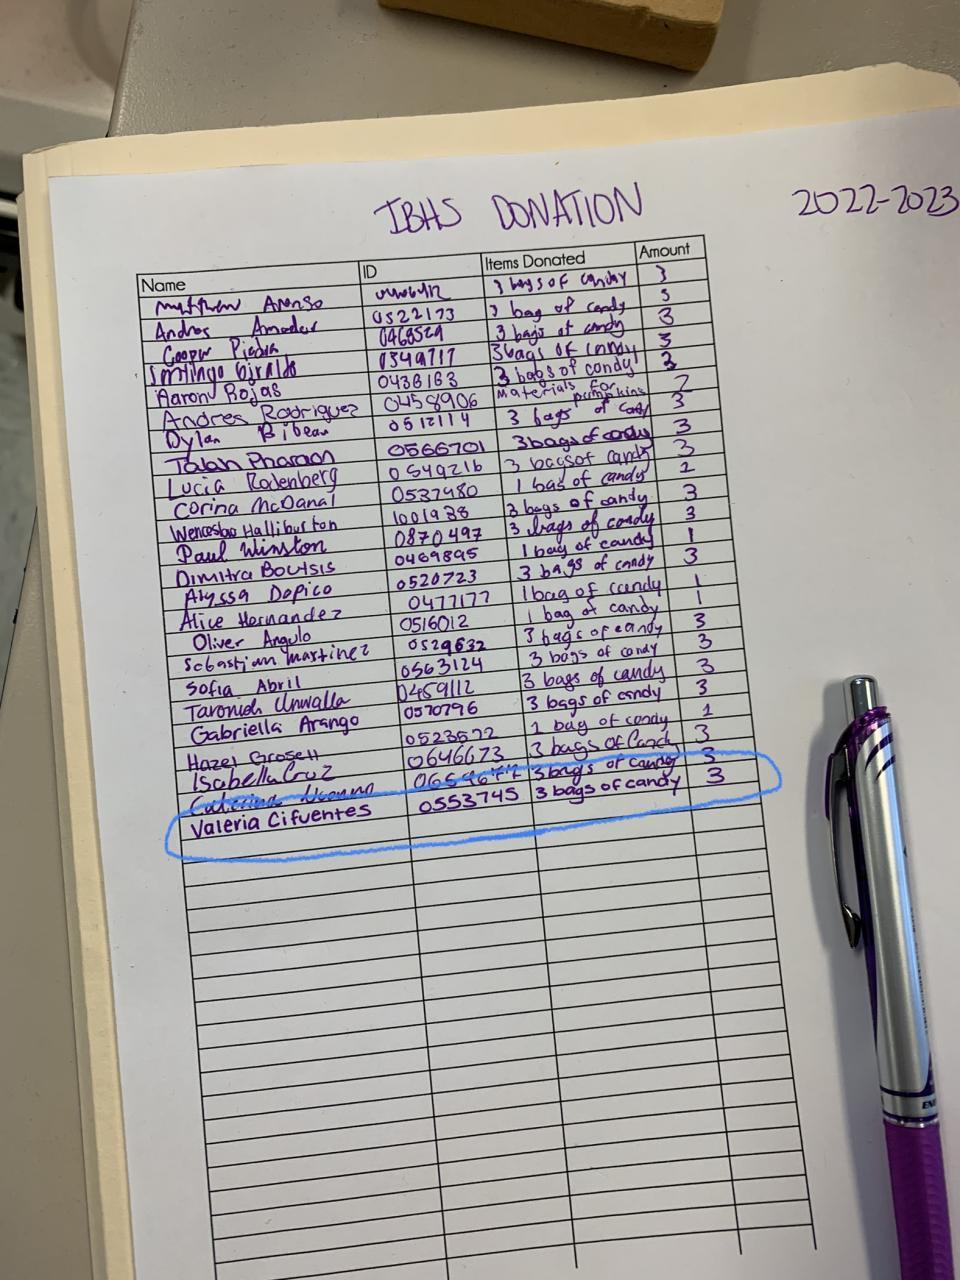 IBHS DONATION 2022-2023
Name ID Items Donated Amount
Matthew Alonso 3 bags of candy 3
Andres Amador 0522173 3 bag of candy 3
Cooper Piedra 0468529 3 bags of candy 3
Santiago Giraldo 0349717 3 bags of candy 3
Aaron Rojas 0436163 3 bags of candy 3
Andres Rodriguez 0458906 Materials for pumpkins 2
Dylan Bibeau 0512114 3 bags of candy 3
Talan Pharaon 0566701 3 bags of candy 3
Lucia Rodenberg 0549216 3 bags of candy 3
Corina McDanal 0537480 1 bag of candy 1
Wenceslao Halliburton 1001938 3 bags of candy 3
Paul Winston 0870497 3 bags of candy 3
Dimitra Boutsis 0469895 1 bag of candy 1
Alyssa Dopico 0520723 3 bags of candy 3
Alice Hernandez 0477177 1 bag of candy 1
Oliver Angulo 0516012 1 bag of candy 1
Sebastian Martinez 0529632 3 bags of candy 3
Sofia Abril 0563124 3 bags of candy 3
Unwalla 0459112 3 bags of candy 3
Gabriella Arango 0570796 3 bags of candy 3
Hazel Grosell 0523572 1 bag of candy 1
Isabella Cruz 0646673 3 bags of Candy 3
3 bags of candy 3
Valeria Cifuentes 0553745 3 bags of candy 3